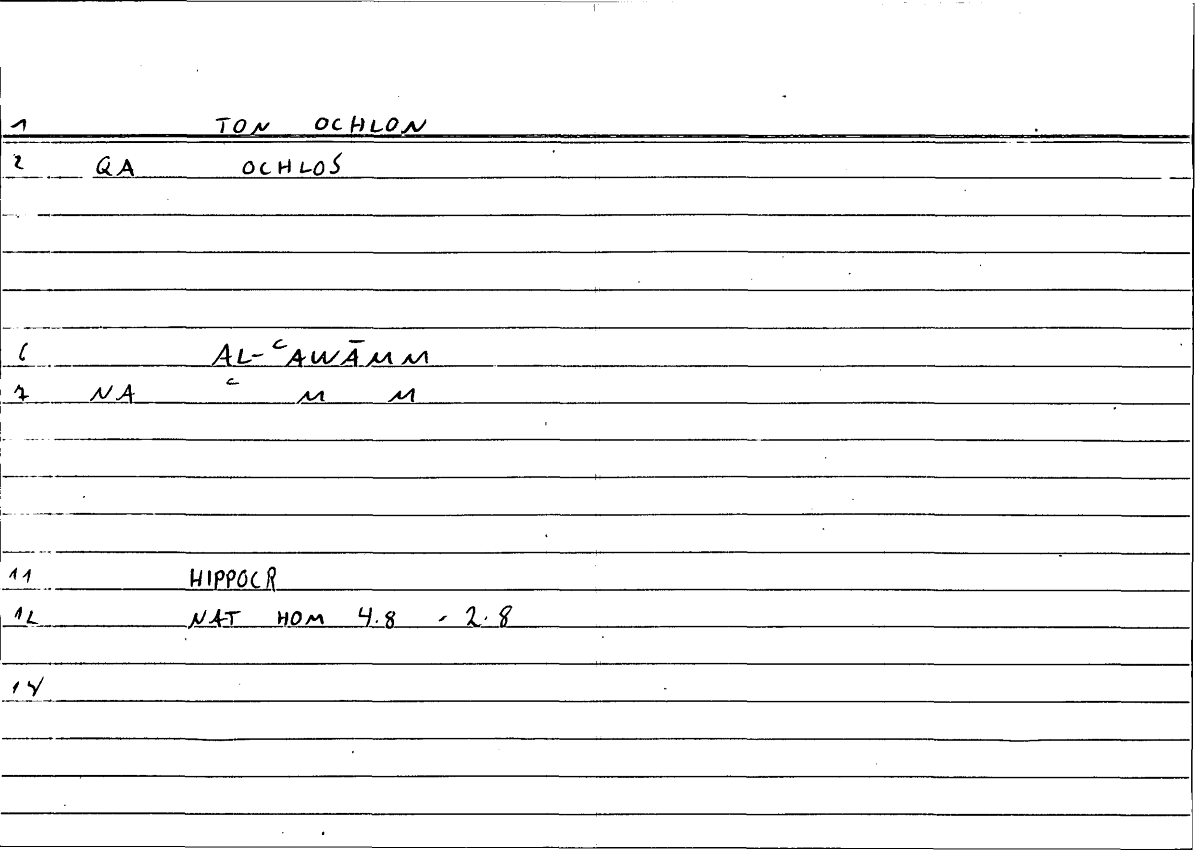 1 TON OCHLON
2 QA OCHLOS
6 AL-ʿAWĀMM
7 NA ʿ M M
11 HIPPOCR
12 NAT HOM 4.8 - 2.8
14